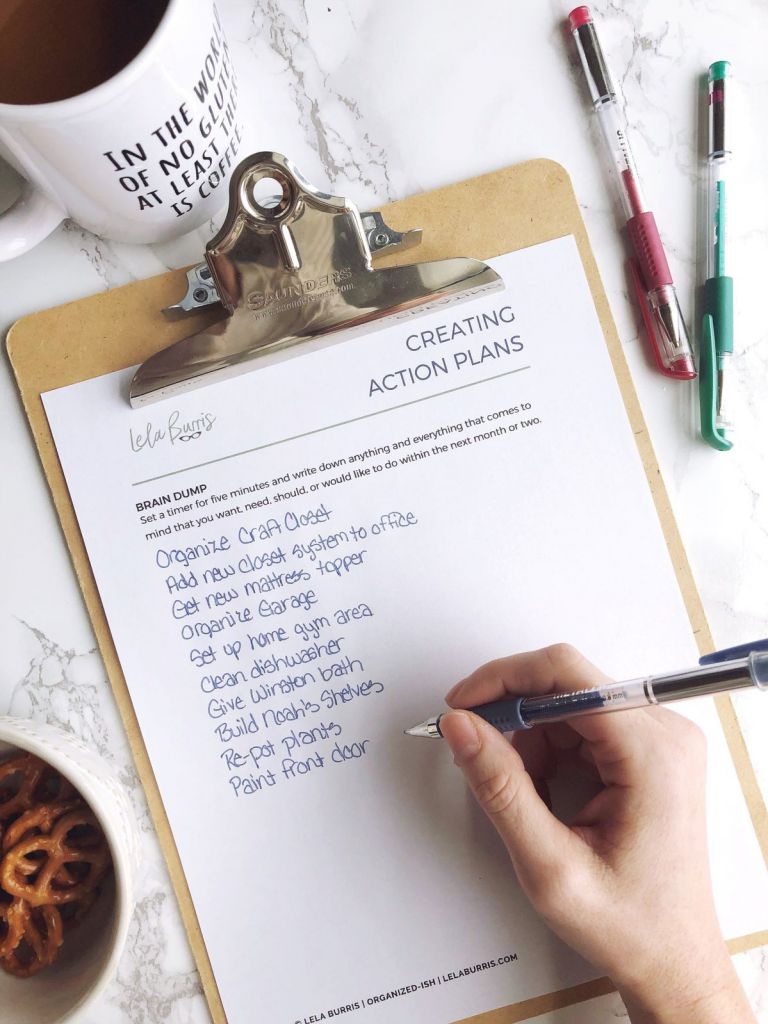 IN THE WORLD
OF NO GLUTEN
AT LEAST THERE
IS COFFEE.
SAUNDERS
CREATING
ACTION PLANS
Lela Burris
BRAIN DUMP
Set a timer for five minutes and write down anything and everything that comes to
mind that you want, need, should, or would like to do within the next month or two.
Organize Craft Closet
Add new closet system to office
Get new mattress topper
Organize Garage
Set up home gym area
Clean dishwasher
Give Winston bath
Build Noah's Shelves
Re-pot plants
Paint front door
© LELA BURRIS | ORGANIZED-ISH | LELABURRIS.COM